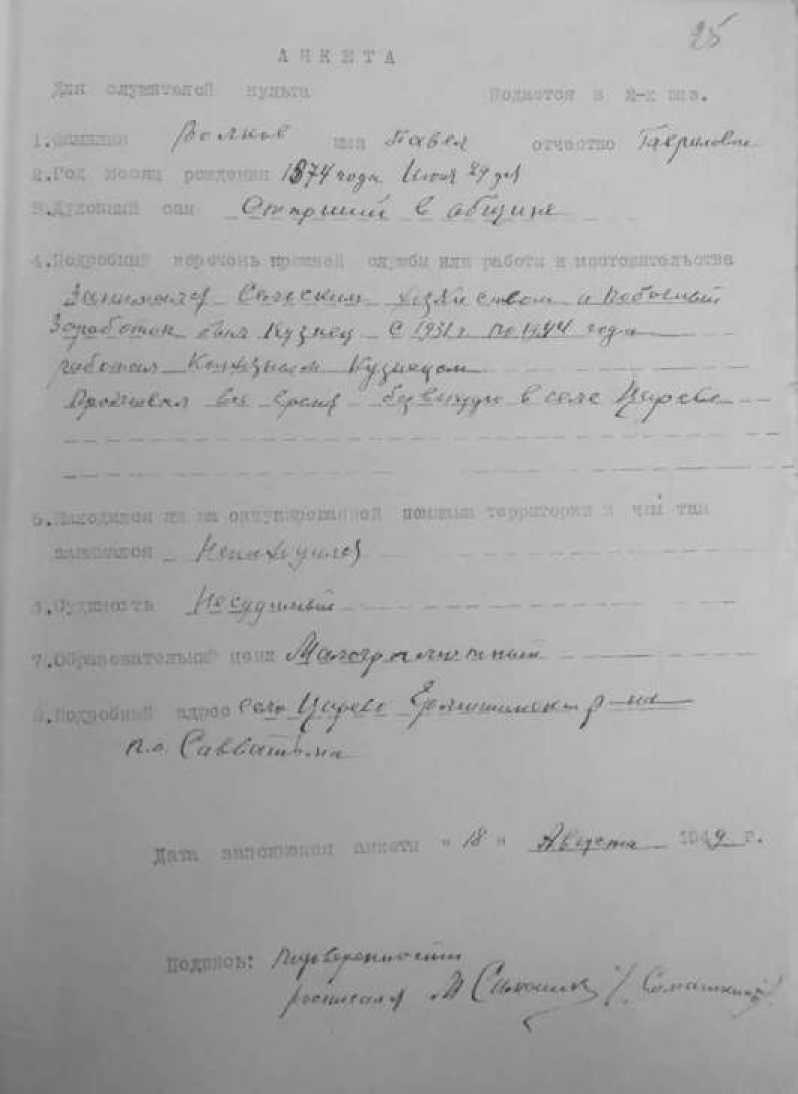 25
АНКЕТА
Для служителей культа Подается в 2-х экз.
1.Фамилия Волков имя Павел отчество Гаврилович
2.Год месяц рождения 1874 года Июня 29 дня
3.Духовный сан Старший в общине
4.Подробный перечень прежней службы или работы и местожительства
Занимался Сельским хозяйством и побочный
Заработок был Кузнец С 1931 г по 1944 года
работал Колхозном Кузнецом
Проживал все время безвыездно в селе Царево
5.Находился ли на оккупированной немцами территории и чем там
занимался Ненаходился
6.Судимость Несудимый
7.Образовательный ценз Малограмотный
8.Подробный адрес село Царево р-на
п.о.
Дата заполнения анкеты "18" Августа 1949 г.
Подпись: По доверенности
росписался